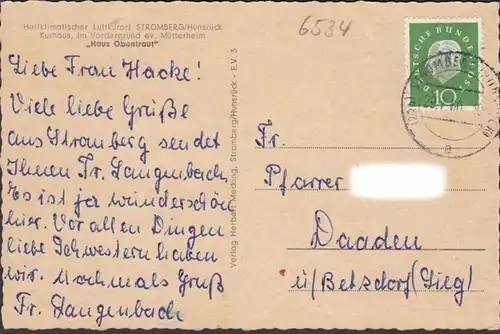 Heilklimatischer Luftkurort STROMBERG/Hunsrück
Kurhaus, im Vordergrund ev. Mütterheim
„Haus Obentraut"
6534
Liebe Frau Hacke!
Viele liebe Grüße
aus Stromberg sendet
Ihnen Fr. Langenbach.
Es ist ja wunderschön
hier. Vor allen Dingen
liebe Schwestern haben
wir. Nochmals Gruß
Fr. Langenbach
Verlag Herbert Mecking, Stromberg/Hunsrück - E.V. 3
DEUTSCHE BUNDESPOST
10
a
Fr.
Pfarrer
Daaden
ü/Betzdorf (Sieg)